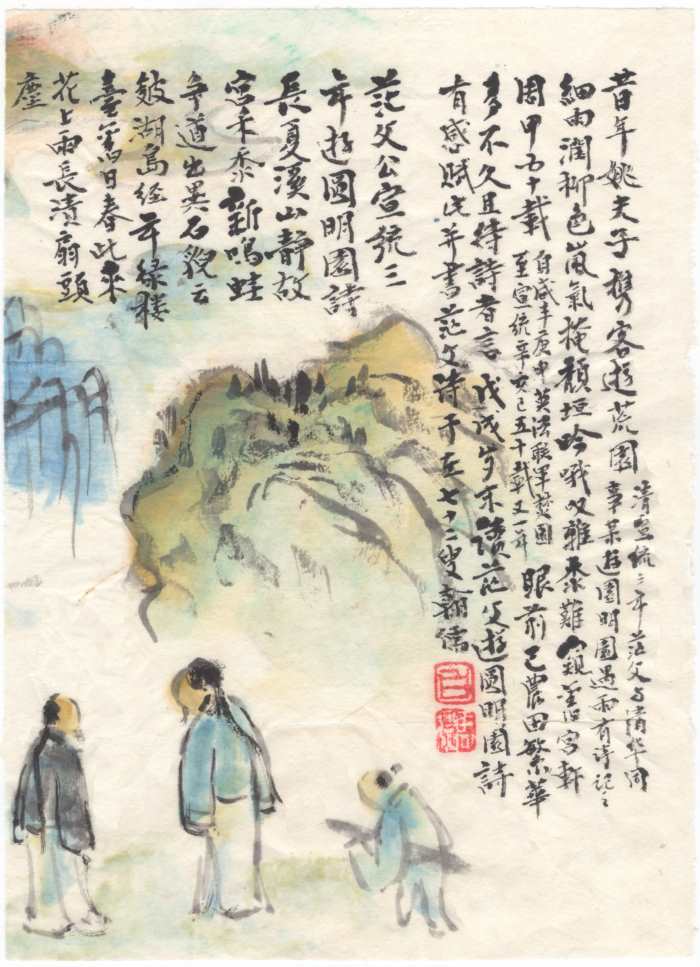 昔年姚夫子携客遊荒園
清宣統三年茫父与清华同
事某遊圓明園遇雨有诗记之
細雨潤柳色嵐氣掩頹垣吟哦叹離黍難窺舊宮軒
周甲五十載
自咸丰庚申英法联军焚園
至宣統辛亥已五十載又一年
眼前已農田繁華
多不久且待詩者言 戊戌岁末讀茫父遊圓明園詩
有感賦此并書茫父诗于左七十二叟翰儒
茫父公宣統三
年遊圓明園詩
長夏溪山靜故
宮禾黍新鳴蛙
争道出異石貌云
皴湖島经年綠樓
臺舊日春此来
花上雨長漬扇頭
塵